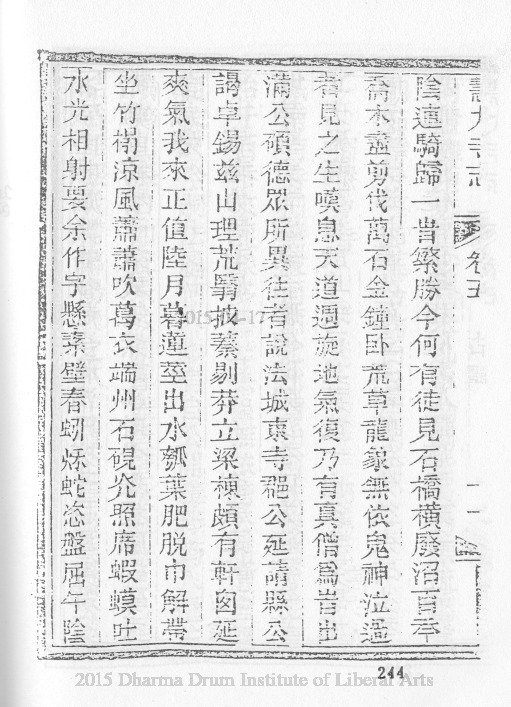 慧大寺志
卷五
十一
陰連騎歸一昔繁勝今何有徒見石橋橫廢沼百年
喬木盡剪伐萬石金鐘臥荒草龍象無依鬼神泣過
者見之生嘆息天道週旋地氣復乃有真僧為昔出
滿公碩德眾所異往者說法城東寺懇公延請縣公
謁卓錫茲山理荒翳披蓁剔莽立梁棟頗有軒囪延
爽氣我來正值陸月暮蓮莖出水瓠葉肥脫巾解帶
坐竹樹涼風蕭蕭吹葛衣端州石硯光照席蝦蟆吐
水光相射要余作字懸素壁春蚓秋蛇恣盤屈午陰
244
2015 Dharma Drum Institute of Liberal Arts